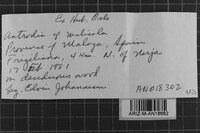 Ex Hb. Oslo
Antrodia cf malicola
Province of Malaga, Spain
Frigiliana, 4 km. N. of Nerja
17 Feb 1981
on deciduous wood
leg. Elvin Johannesen
AN018302
ARIZ-M-AN18662